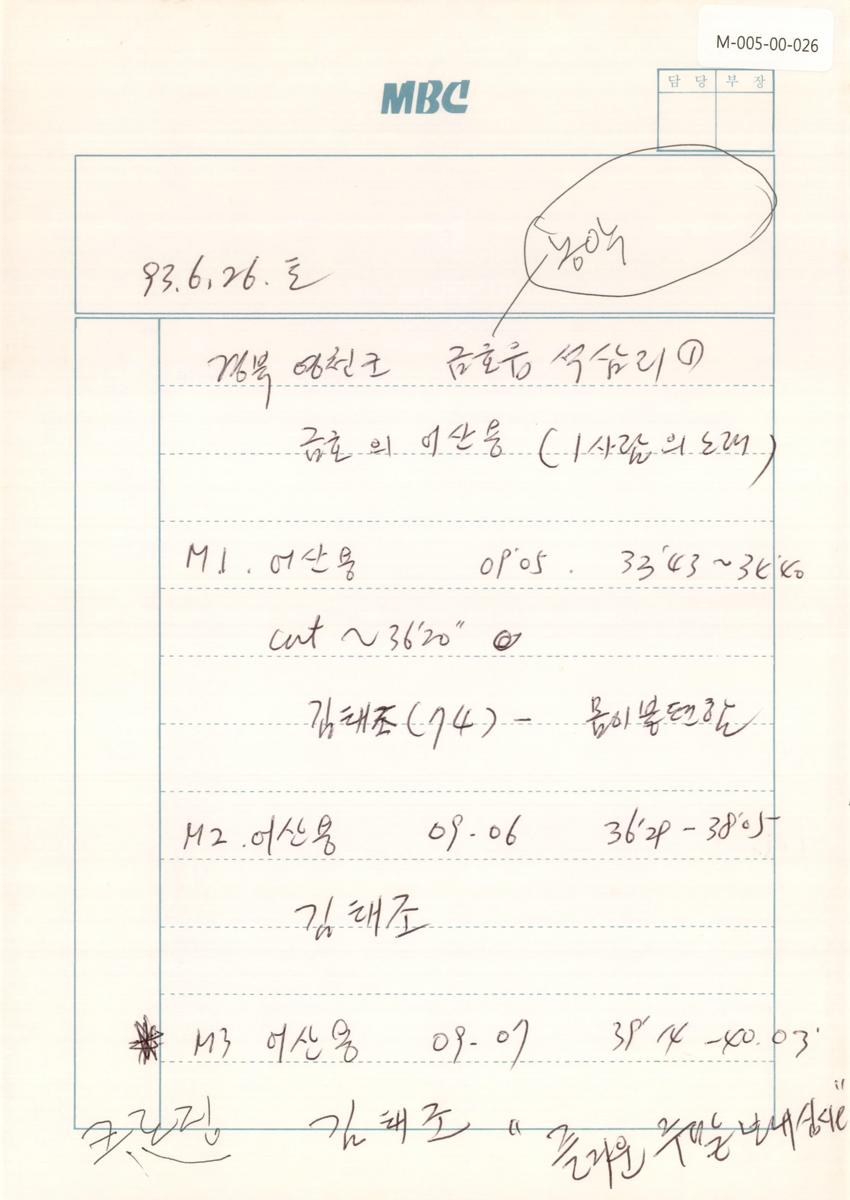 M-005-00-026
MBC
담 당 부 장
농악
93.6.26. 토
경북 영천군 금호읍 석섬리 ①
금호의 어산용 (1사람의 노래)
M1. 어산용 09'05. 33'43~34'40
cut ~36'20"
김태조(74) - 몸이 불편함
M2. 어산용 09-06 36'29-38'05
김태조
* M3 어산용 09-07 39'14-40.03'
크로징 김태조 "즐거운 주말 보내십시요"